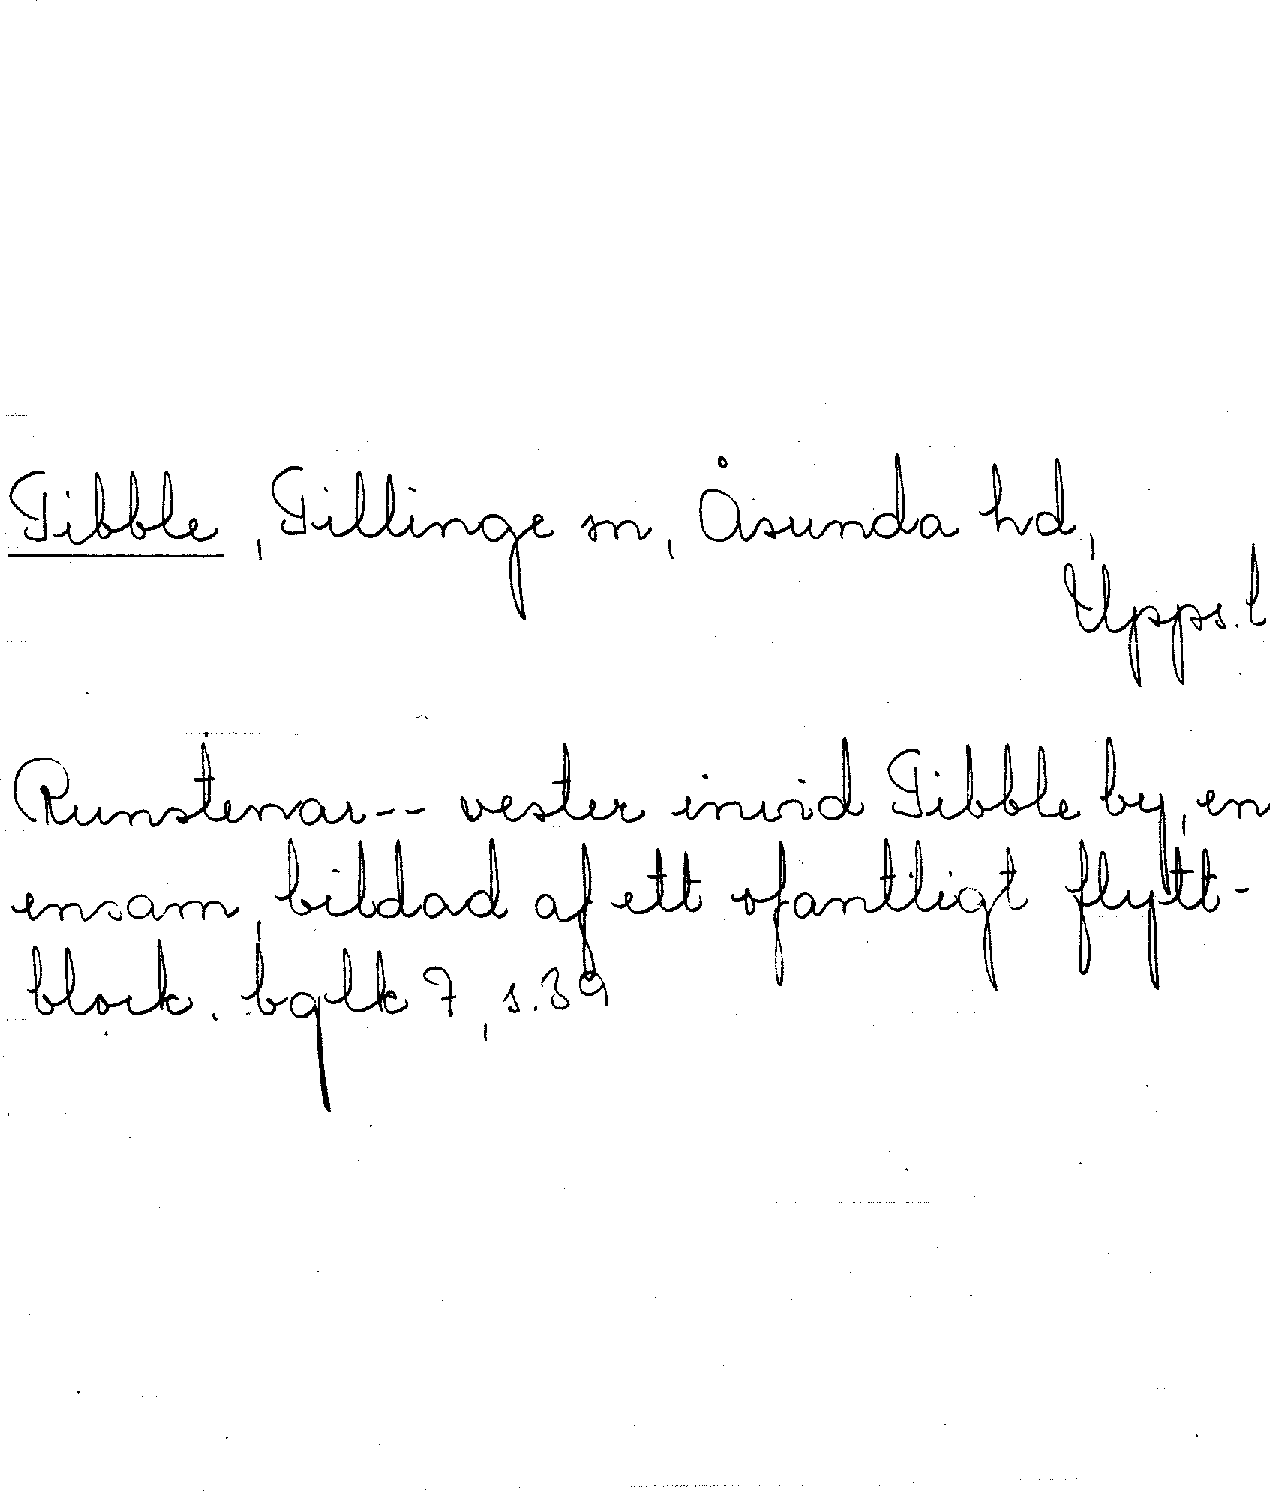 Tibble, Tillinge sn, Åsunda hd,
Upps. l
Runstenar -- vester invid Tibble by, en
ensam, bildad af ett ofantligt flytt-
block. bglk 7, s. 39